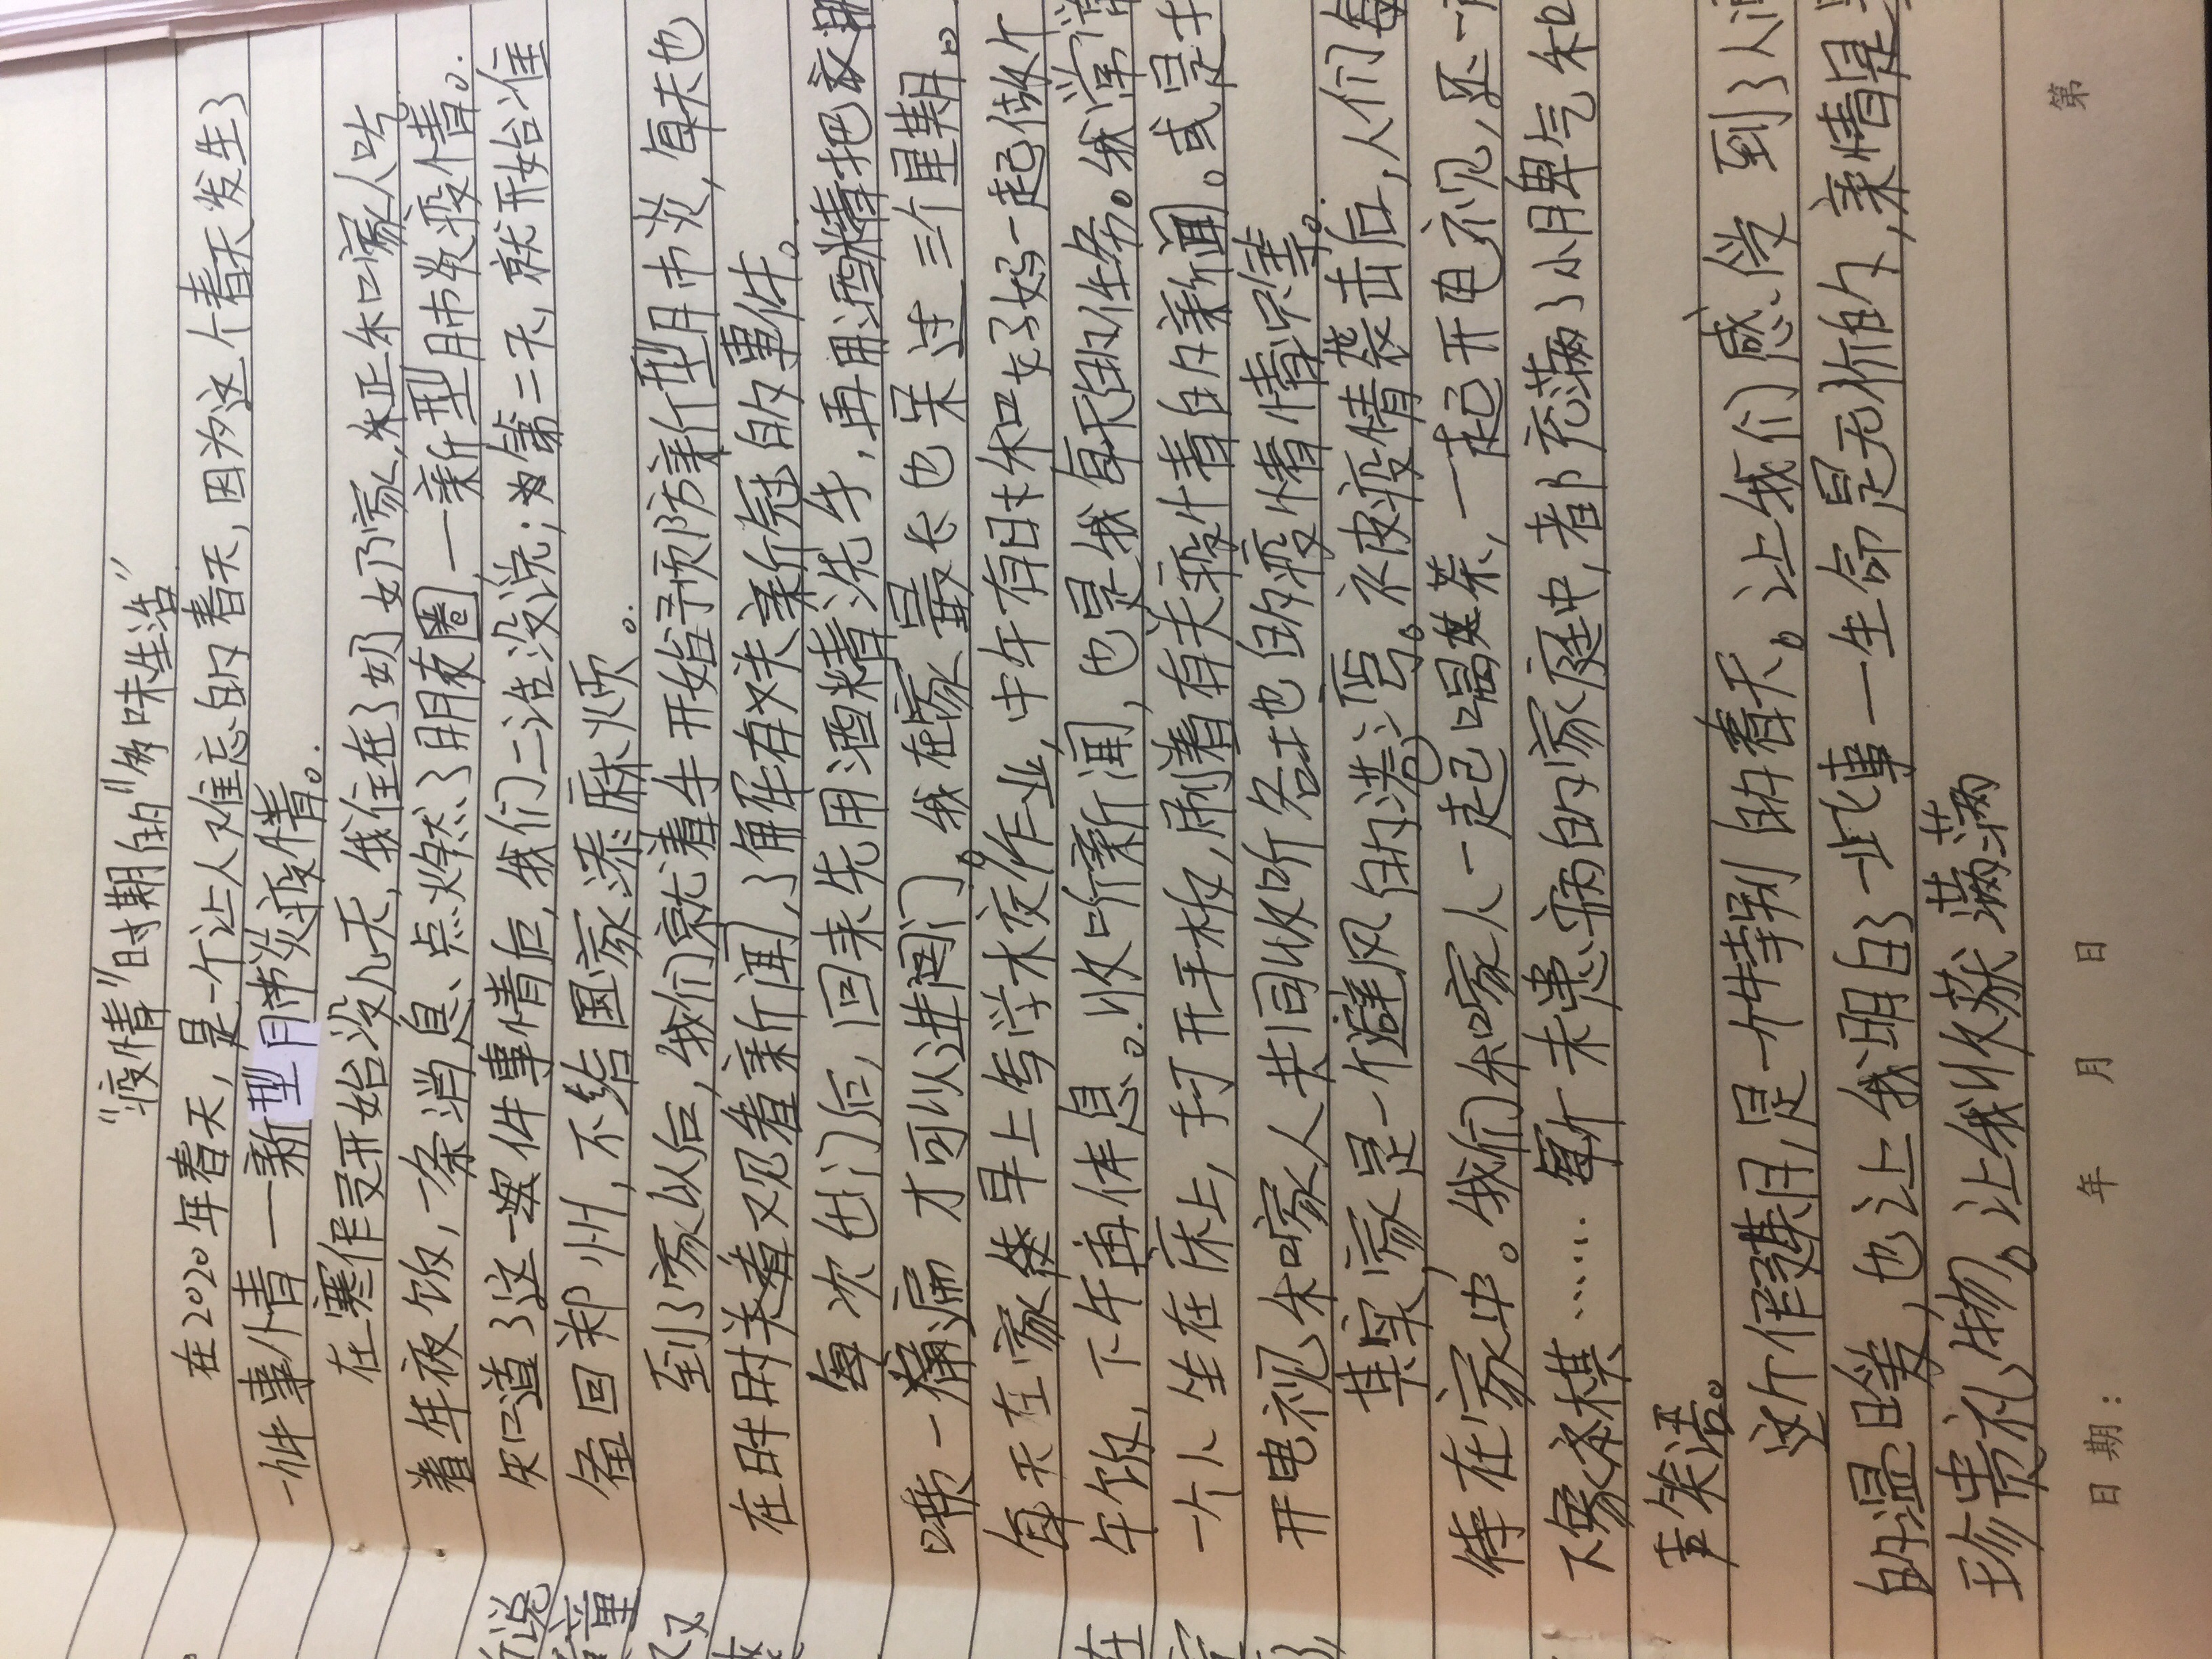 "疫情"时期的"多味生活"
在2020年春天,是一个让人难忘的春天,因为这个春天发生了
一件事情——新型肺炎疫情。
在寒假开始没几天,我住在了奶奶家,正和家人吃
着年夜饭,一条消息、点燃了朋友圈—新型肺炎疫情。
知道了这一件事情后,我们二话没说;第二天,就开始准
备回郑州,不给国家添麻烦。
到了家以后,我们就着手开始预防新型肺炎,每天也
在时时关着观看新闻,了解有关新冠的事件。
每次出门后,回来先用酒精洗手,再用酒精把衣服
喷一遍 才可以进门。我在家最长也呆过三个星期。
每天在家 早上写学术交作业,中午有时和妈妈一起做个
午饭,下午再休息。收听新闻,也是我每天的任务。我常常
一个人坐在床上,打开手机,刷着有关疫情的新闻。或是打
开电视和家人共同收听各地的疫情情况等。
其实,家是一个避风的港湾。被疫情袭击后,人们每
待在家中。我们和家人一起喝茶,一起开电视,还一
下象棋……每个未患病的家庭中,都充满了小脾气和
声笑语。
这个假期,是一个特别的春天。让我们感受到了人间
的温暖,也让我明白了一此事—生命是无价的,亲情是
珍贵礼物。让我收获满满
日期: 年 月 日
第